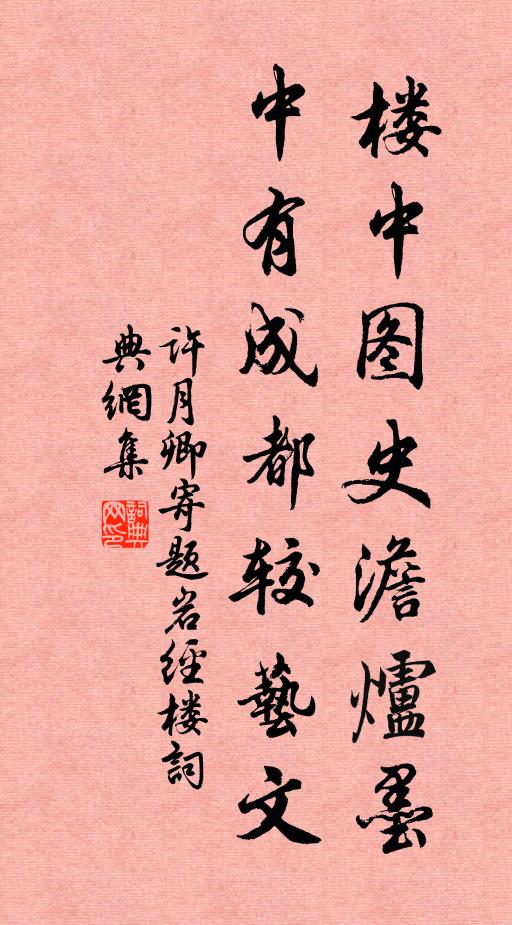 楼中图史澹爐墨
中有成都较藝文
许月卿寄题岩经楼詞
典網集
詞典网印